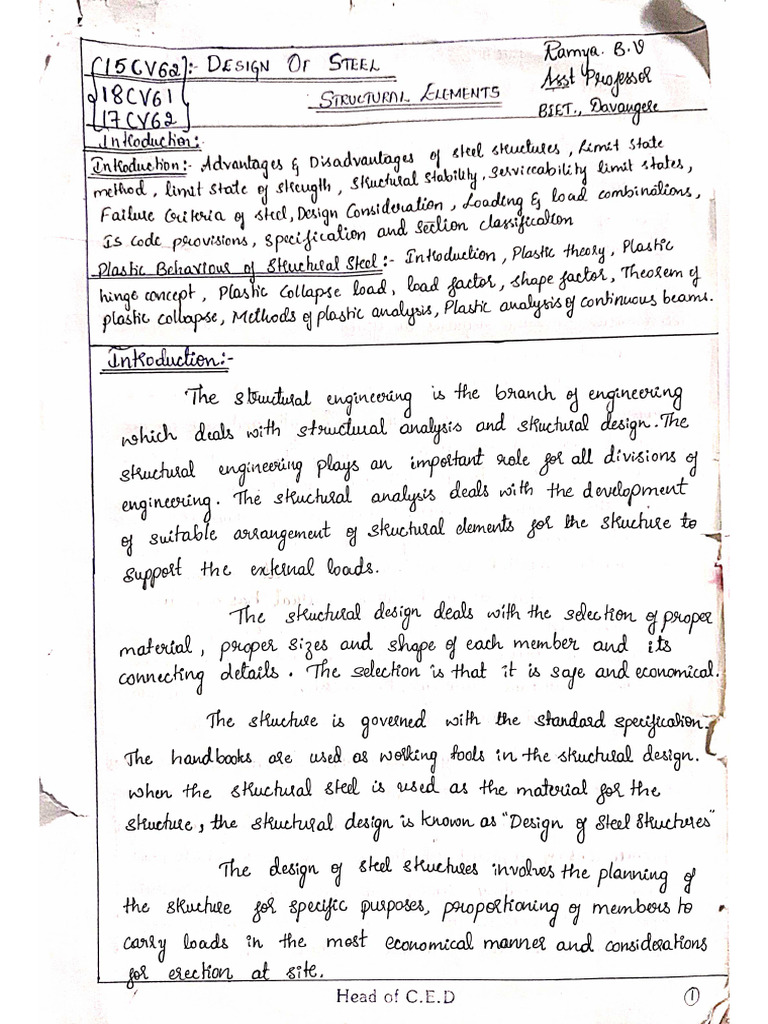 [15CV62]:- DESIGN OF STEEL
18CV61
17CV62
STRUCTURAL ELEMENTS
Ramya. B.V
Asst Professor
BIET., Davangere
Introduction:-
Introduction:- Advantages & Disadvantages of steel structures, Limit state
method, limit state of strength, Structural stability, serviceability limit states,
Failure Criteria of steel, Design Consideration, Loading & load combinations,
Is code provisions, specification and section classification
Plastic Behaviour of Structural Steel:- Introduction, Plastic theory, Plastic
hinge concept, Plastic Collapse load, load factor, shape factor, Theorem of
plastic collapse, Methods of plastic analysis, Plastic analysis of continuous beams.
Introduction:-
The structural engineering is the branch of engineering
which deals with structural analysis and structural design. The
structural engineering plays an important role for all divisions of
engineering. The structural analysis deals with the development
of suitable arrangement of structural elements for the structure to
support the external loads.
The structural design deals with the selection of proper
material, proper sizes and shape of each member and its
connecting details. The selection is that it is safe and economical.
The structure is governed with the standard specification.
The handbooks are used as working tools in the structural design.
when the structural steel is used as the material for the
structure, the structural design is known as "Design of Steel Structures"
The design of steel structures involves the planning of
the structure for specific purposes, proportioning of members to
carry loads in the most economical manner and considerations
for erection at site.
Head of C.E.D
1